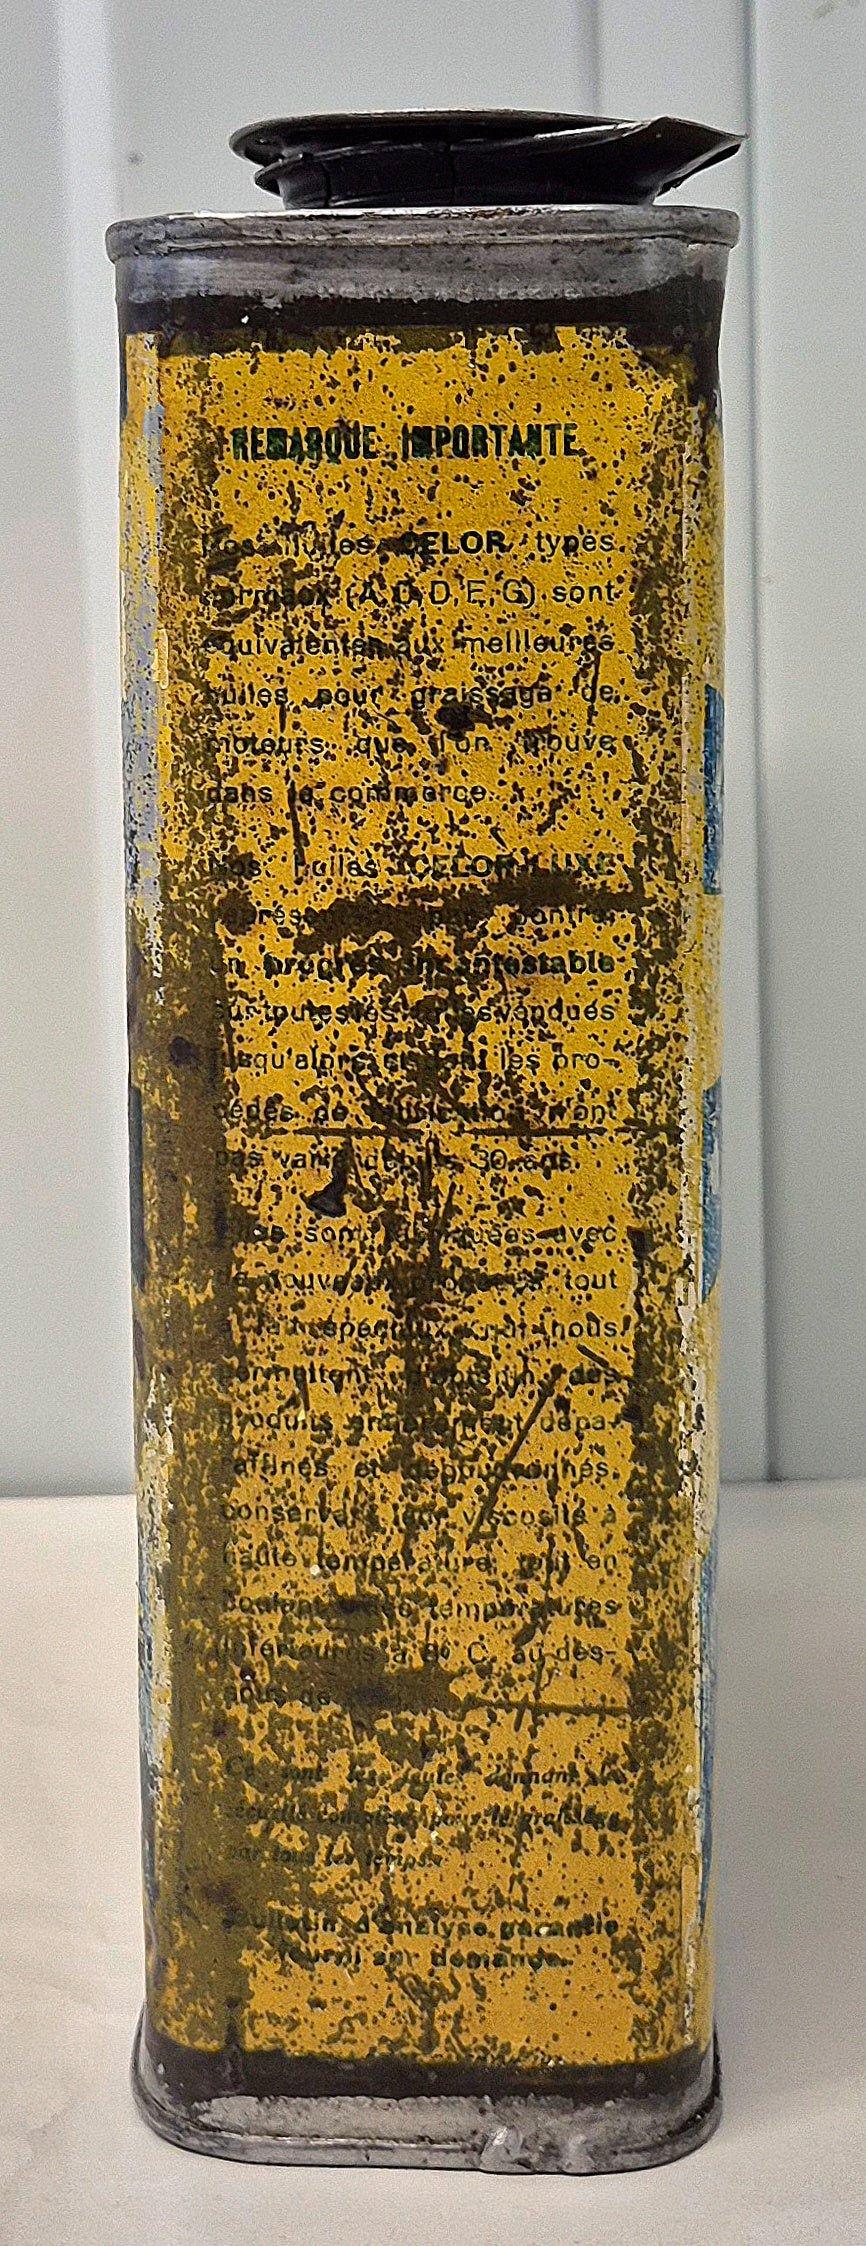 REMARQUE IMPORTANTE
Nos huiles CELOR types
normaux (A, D, E, G) sont
équivalentes aux meilleures
huiles pour graissage de
moteurs que l'on trouve
dans le commerce.
Nos huiles CELOR-LUXE
représentent par contre
un progrès incontestable
sur toutes les huiles vendues
jusqu'alors et dont les pro-
cédés de fabrication n'ont
pas varié depuis 30 ans.
Elles sont fabriquées avec
de nouveaux procédés tout
à fait spéciaux qui nous
permettent d'obtenir des
produits entièrement dépa-
raffinés et dégoudronnés,
conservant leur viscosité à
haute température tout en
coulant à des températures
inférieures à 8° C. au-des-
sous de
Ce sont les seules donnant la
sécurité complète pour le graissage
par tous les temps.
Bulletin d'analyse garantie
fourni sur demande.